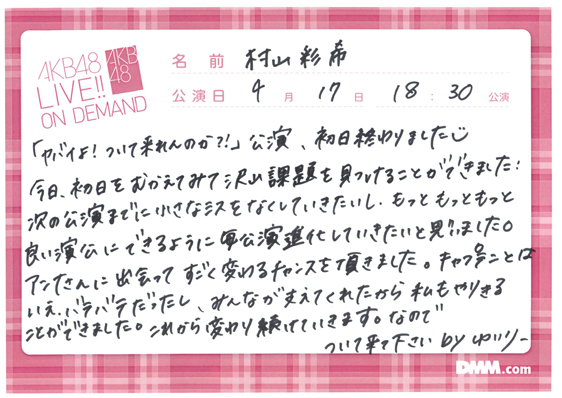 AKB48
LIVE!!
ON DEMAND
AKB
48
名前 村山彩希
公演日 4月17日 18:30公演
「ヤバイよ!ついて来れんのか?!」公演、初日終わりました
今日、初日をむかえてみて沢山課題を見つけることができました!
次の公演までに小さなミスをなくしていきたいし、もっともっともっと
良い演公にできるように毎公演進化していきたいと思いました。
アンナさんに出会ってすごく変わるチャンスを頂きました。キャプテンとは
いえ、バラバラだったし、みんなが支えてくれたから私もやりきる
ことができました。これから変わり続けていきます。なので
ついて来て下さい by ゆいりー
DMM.com